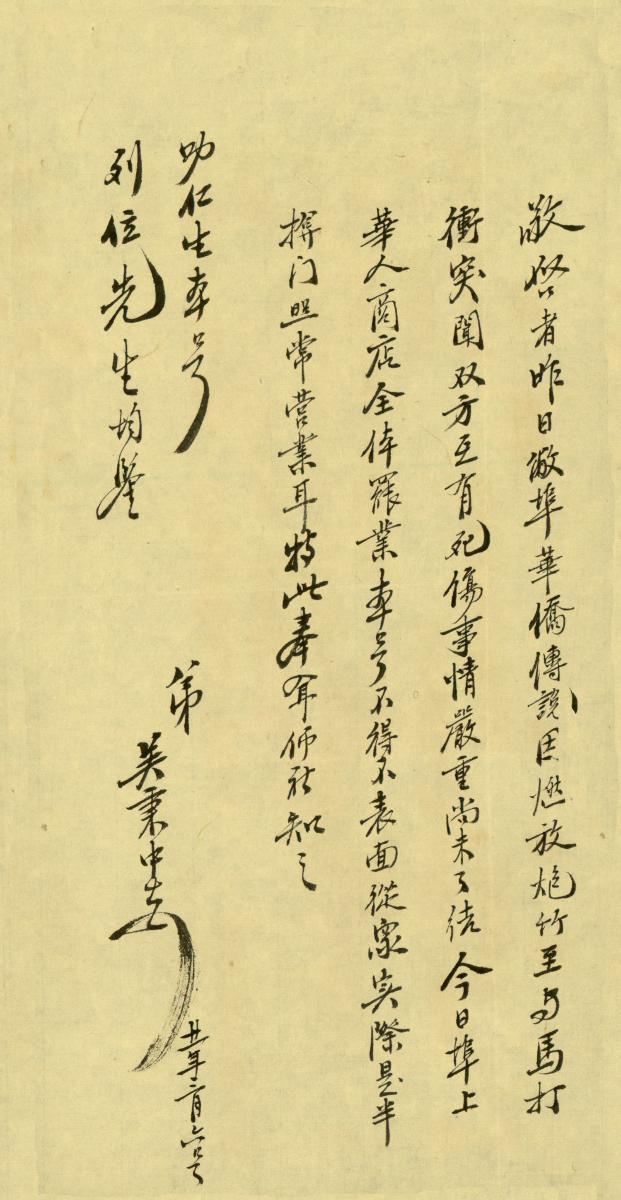 敬啓者昨日敝埠華僑傳說因燃放炮竹至与馬打
衝突聞双方互有死傷事情嚴重尚未了結今日埠上
華人商店全体罷業本号不得不表面從衆实際是半
门照常营業耳特此奉仰祈知之
叻仁生本号
列位先生均鑒
弟
吳秉中
年二月六号